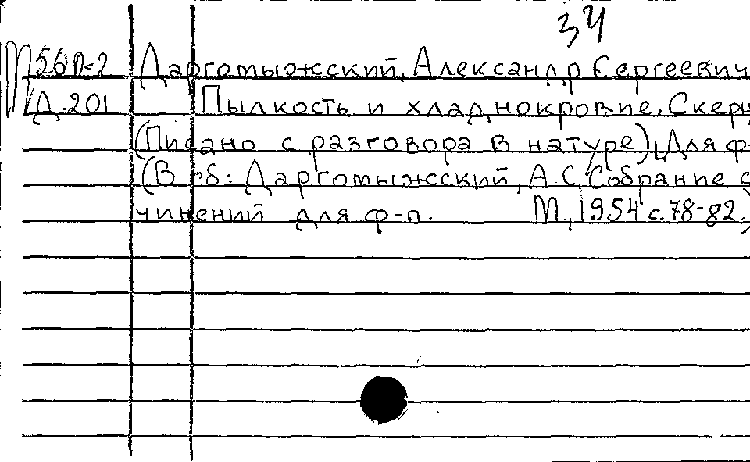 34
М56П-2 Даргомыжский, Александр Сергеевич
Д-201 Пылкость и хладнокровие. Скерц
(Писано с разговора в натуре). Для ф-
(В сб: Даргомыжский, А.С. Собрание с
чинений для ф-п. М., 1954 с. 78-82.